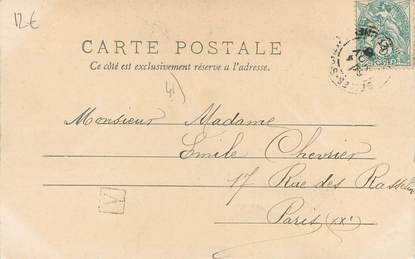 12€
CARTE POSTALE
Ce côté est exclusivement réservé à l'adresse.
Monsieur Madame
Emile Chevrier
17 Rue des
Paris (XXe
A